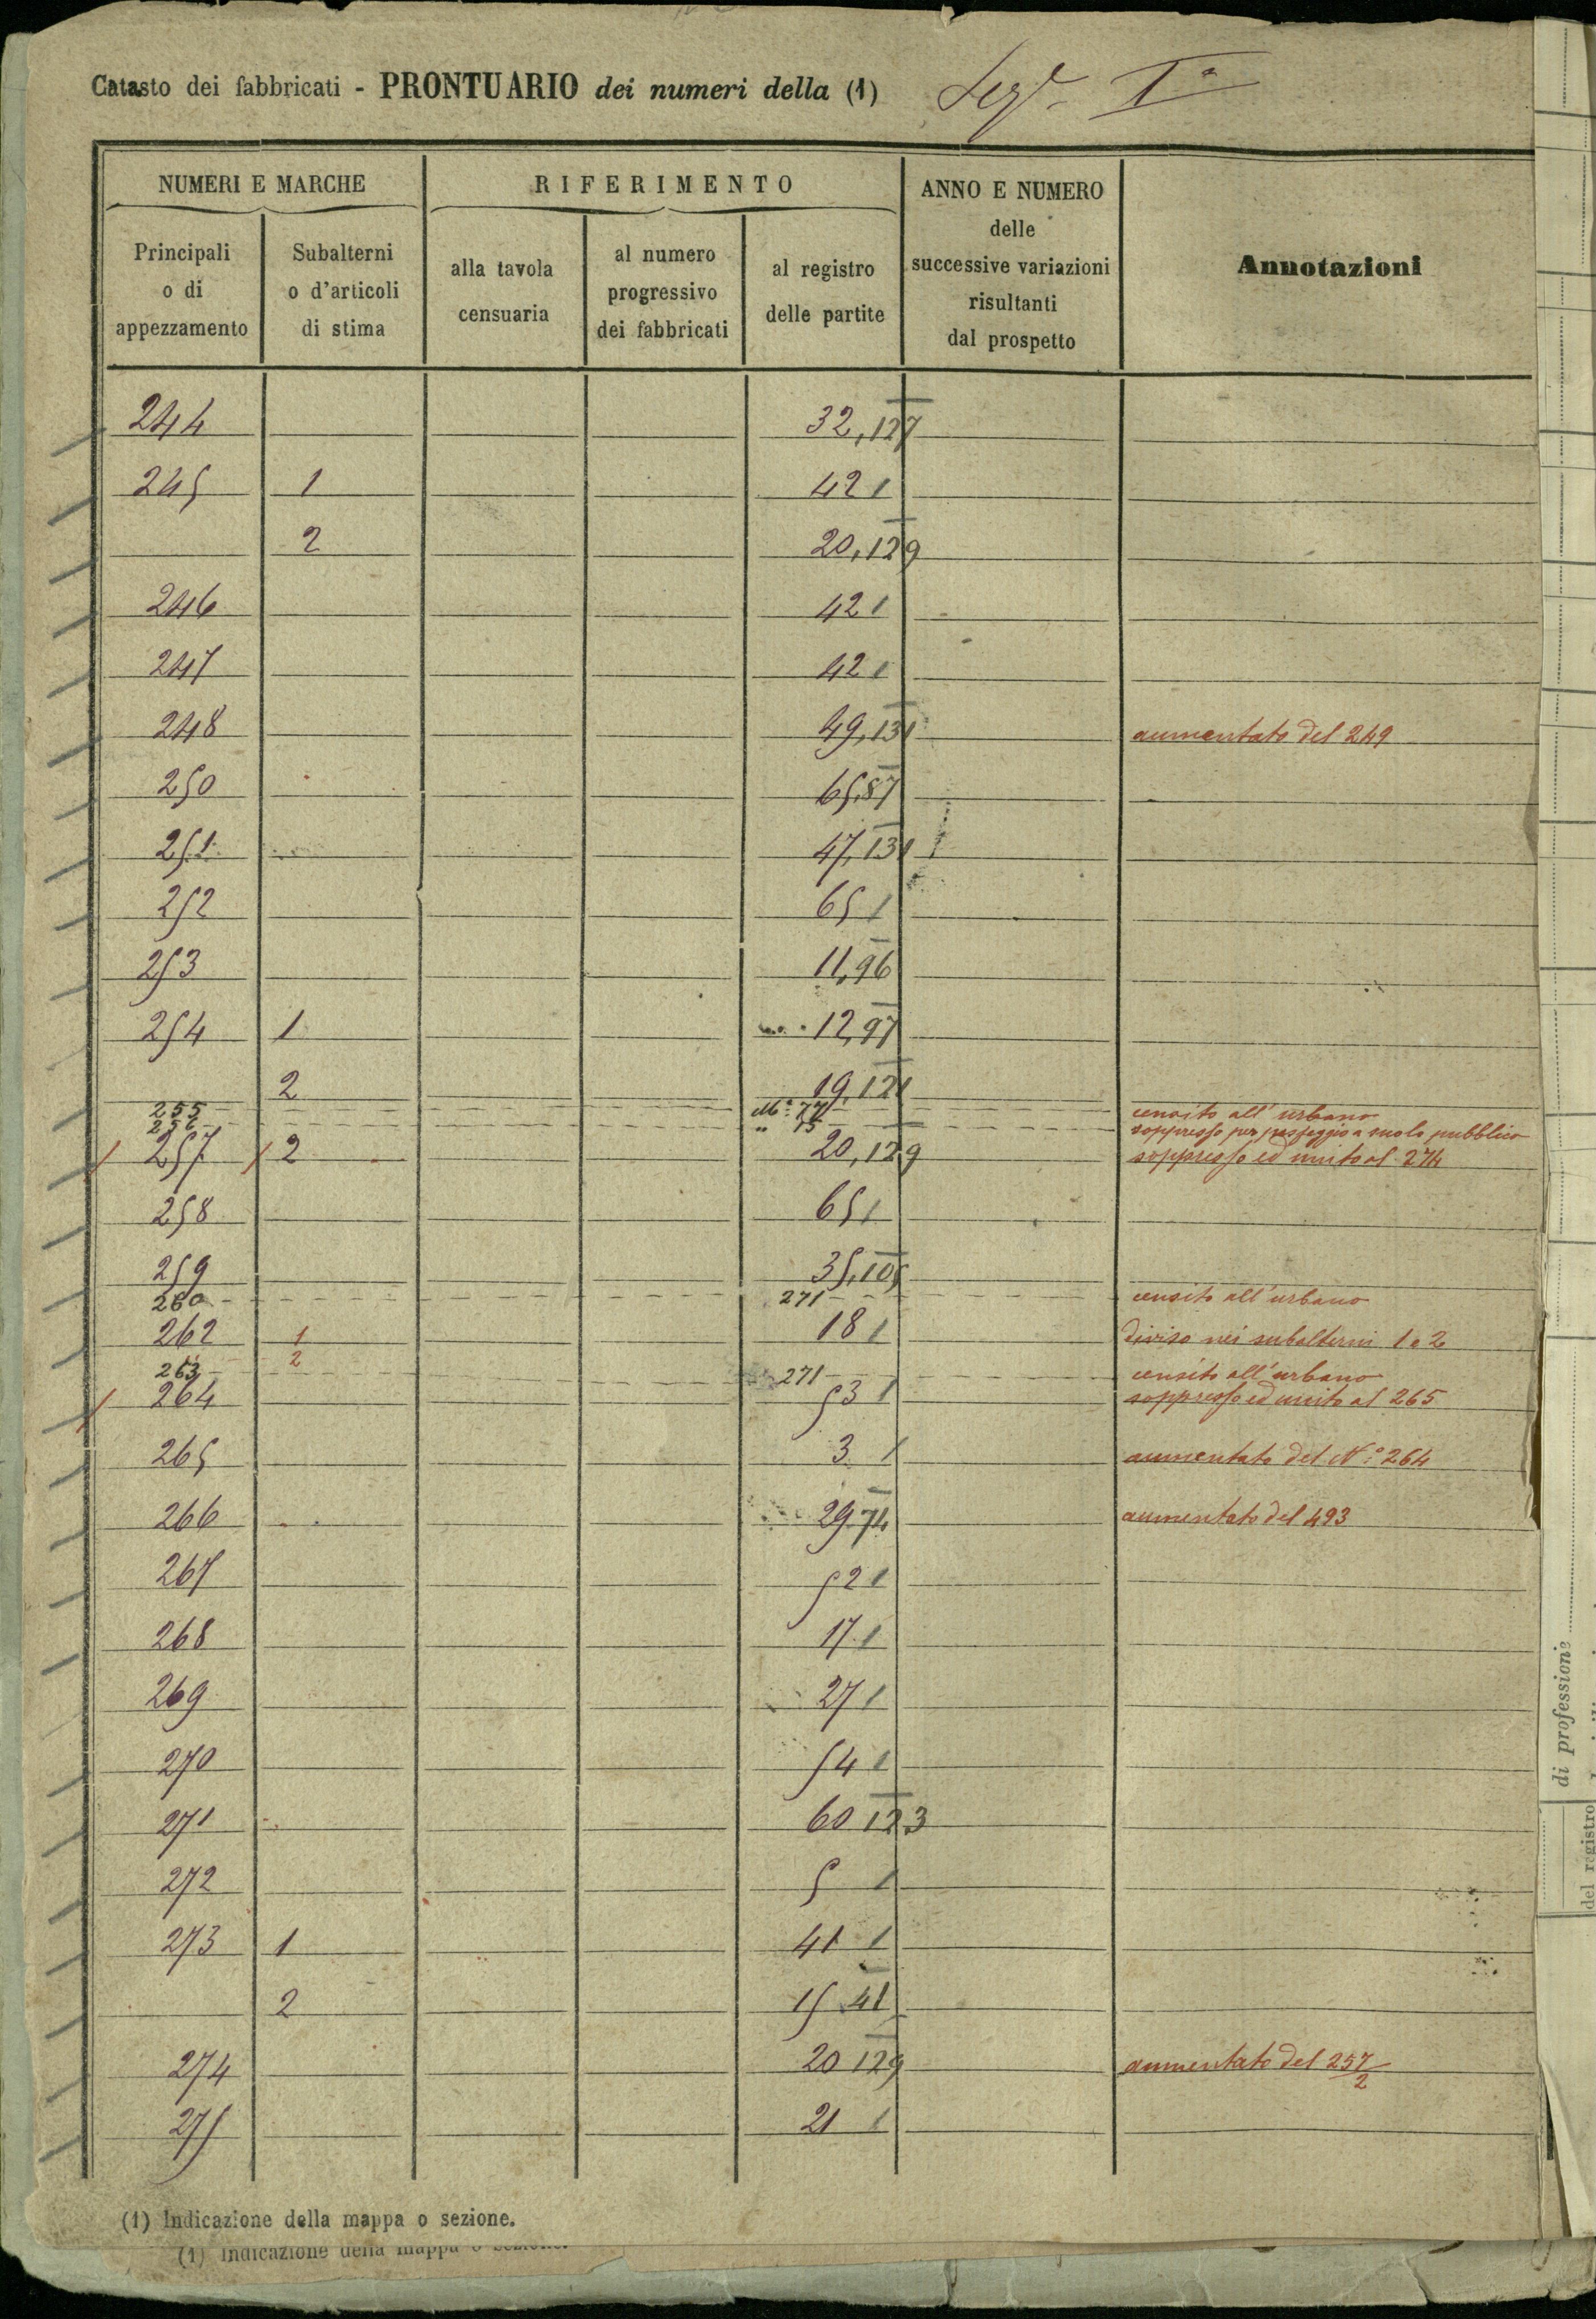 Catasto dei fabbricati - PRONTUARIO dei numeri della (1) Sez.e Ia
NUMERI E MARCHE
RIFERIMENTO
ANNO E NUMERO delle successive variazioni risultanti dal prospetto
Annotazioni
Principali o di appezzamento
Subalterni o d'articoli di stima
alla tavola censuaria
al numero progressivo dei fabbricati
al registro delle partite
244 32,127
245 1 42 1
2 20,129
246 42 1
247 42 1
248 49,131 aumentato del 249
250 65,87
251 47,131
252 65 1
253 11,96
254 1 12,97
2 19,121
255 Mo 77 censito all'urbano
256 " 75 soppresso per passaggio a suolo pubblico
257 2 20,129 soppresso ed unito al 274
258 65 1
259 35,105
260 271 censito all'urbano
262 1 18 1 diviso nei subalterni 1 e 2
2
263 271 censito all'urbano
264 53 1 soppresso ed unito al 265
265 3 1 aumentato del No 264
266 29 74 aumentato del 493
267 52 1
268 17 1
269 27 1
270 54 1
271 60 123
272 5 1
273 1 41 1
2 15 41
274 20 129 aumentato del 257/2
275 21 1
(1) Indicazione della mappa o sezione.
(1) Indicazione della mappa o sezione.
di professione
del registro